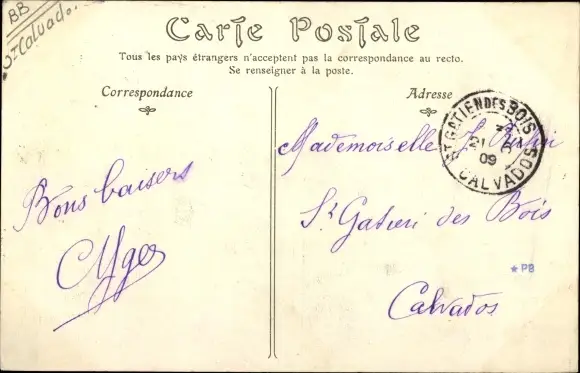 BB
Calvados
Carte Postale
Tous les pays étrangers n'acceptent pas la correspondance au recto.
Se renseigner à la poste.
Correspondance
Adresse
Bons baisers
Mademoiselle
St Gatien des Bois
Calvados
ST GATIEN DES BOIS
21
09
CALVADOS
* PB